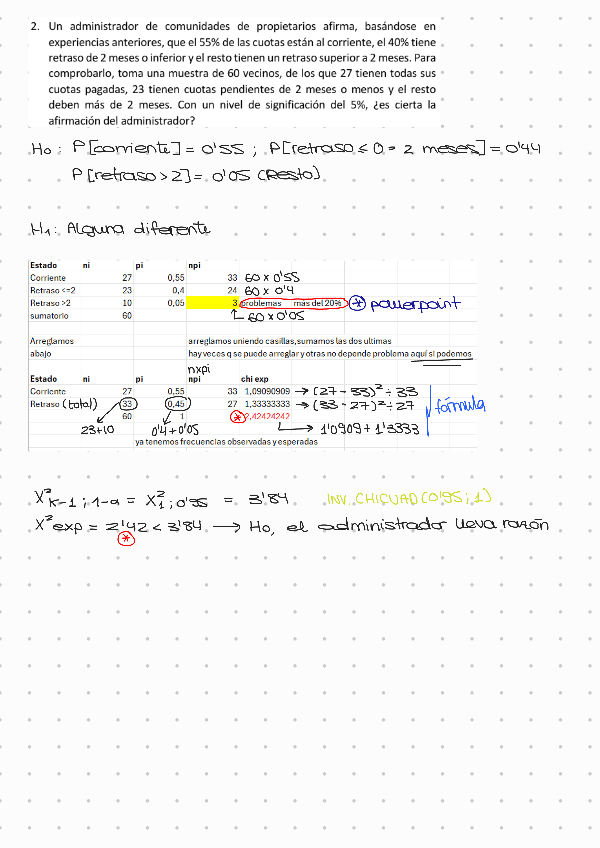 2. Un administrador de comunidades de propietarios afirma, basándose en
experiencias anteriores, que el 55% de las cuotas están al corriente, el 40% tiene
retraso de 2 meses o inferior y el resto tienen un retraso superior a 2 meses. Para
comprobarlo, toma una muestra de 60 vecinos, de los que 27 tienen todas sus
cuotas pagadas, 23 tienen cuotas pendientes de 2 meses o menos y el resto
deben más de 2 meses. Con un nivel de significación del 5%, ¿es cierta la
afirmación del administrador?
Ho: P[corriente] = 0'55 ; P[retraso ≤ 0 = 2 meses] = 0'44
P[retraso > 2] = 0'05 (Resto)
H1: Alguna diferente
Estado ni pi npi
Corriente 27 0,55 33 60 x 0'55
Retraso <=2 23 0,4 24 60 x 0'4
Retraso >2 10 0,05 3 problemas más del 20% * powerpoint
sumatorio 60 60 x 0'05
Arreglamos arreglamos uniendo casillas,sumamos las dos ultimas
abajo hay veces q se puede arreglar y otras no depende problema aquí si podemos
nxpi
Estado ni pi npi chi exp
Corriente 27 0,55 33 1,09090909 → (27-33)² ÷ 33
Retraso (total) 33 0,45 27 1,33333333 → (33-27)² ÷ 27 fórmula
60 1 * 2,42424242 → 1'0909 + 1'3333
23+10 0'4+0'05
ya tenemos frecuencias observadas y esperadas
X² k-1 ; 1-α = X² 1 ; 0'95 = 3'84 INV.CHICUAD(0'95 ; 1)
X² exp = 2'42 < 3'84 → Ho, el administrador lleva razón
*